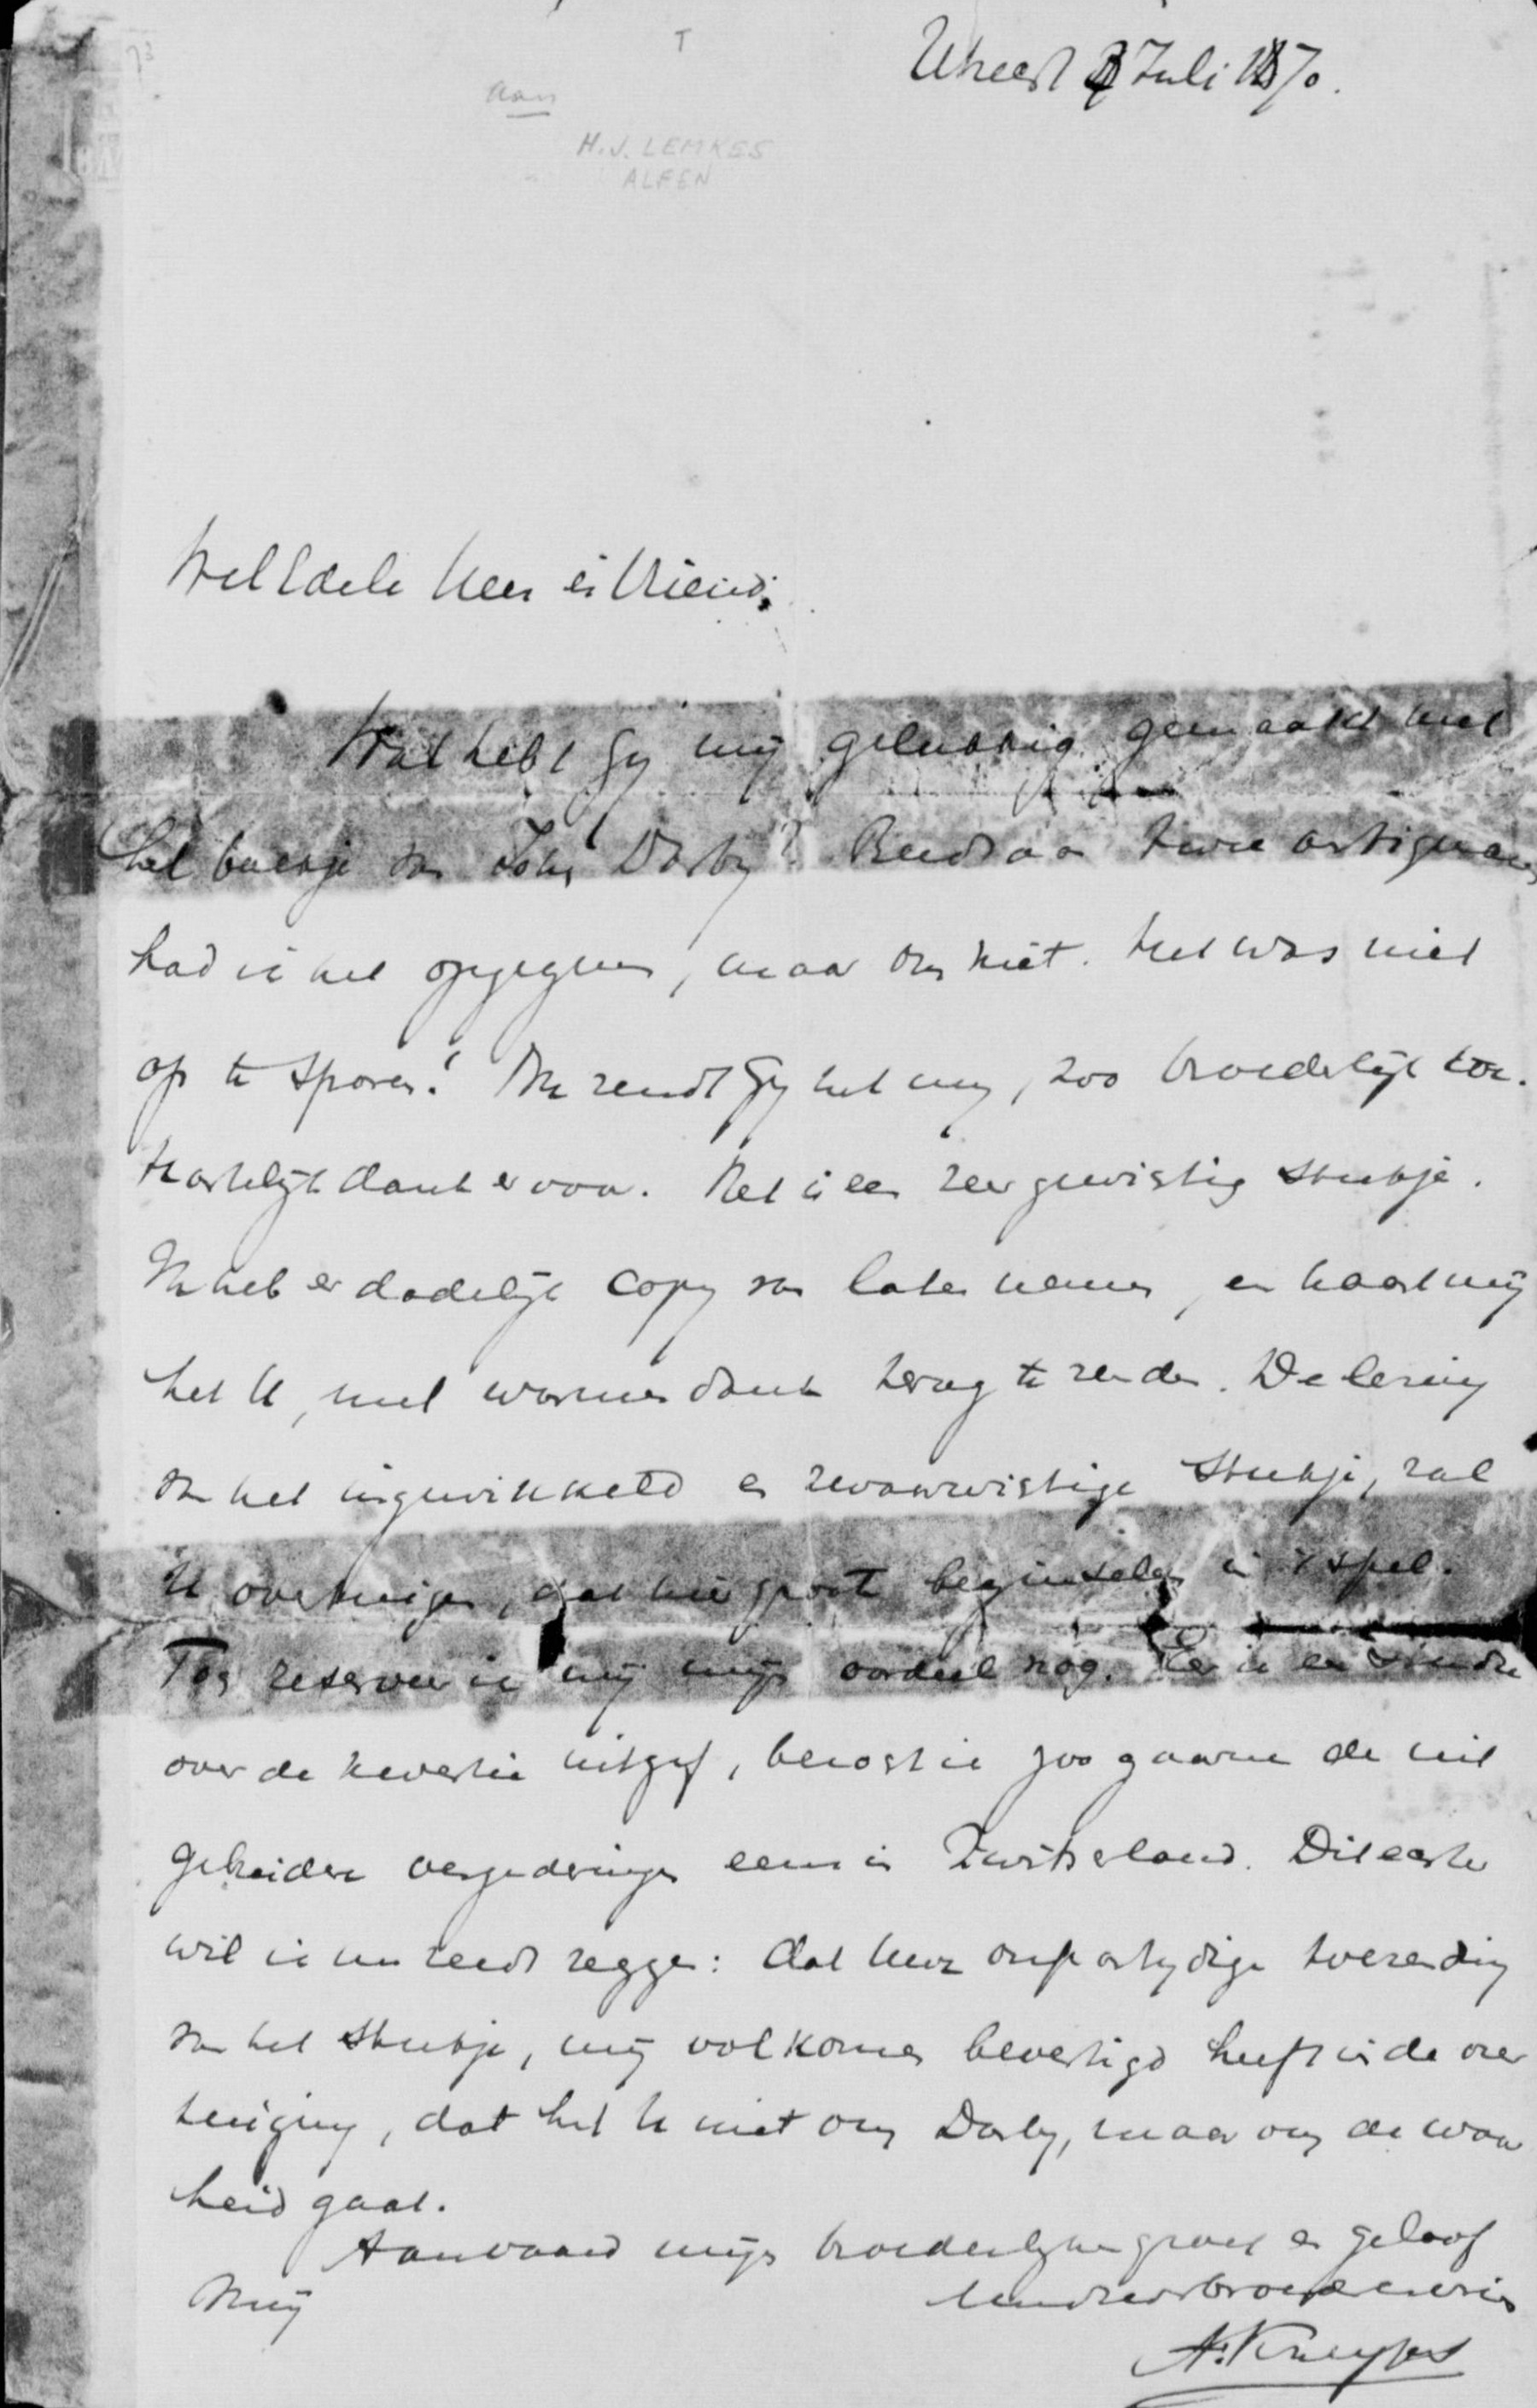 T
Utrecht Juli 1870.
aan
H.J. LEMKES
ALFEN
WelEdele Heer en Vriend;
Wat hebt Gij mij gelukkig gemaakt met
het boekje van John Darby? Reeds aan twee antiquaars
had ik het opgegeven, maar om niet. Het was niet
op te sporen! Nu zendt Gij het mij, zoo broederlijk toe.
Hartelijk dank er voor. Het is een zeer gewichtig stukje.
Ik heb er dadelijk copy van laten nemen, en haast mij
het U, met warmen dank terug te zenden. De lezing
van het ingewikkeld en zwaarwichtige stukje, zal
U overtuigen, dat hier groote beginselen in 't spel.
Toch reserveer ik mij mijn oordeel nog. Eer ik een studie
over de kwestie uitgeef, bezocht ik zoo gaarne de uit
gebreidere vergaderingen eens in Zwitserland. Dit echter
wil ik nu reeds zeggen: dat Uwe onpartijdige toezending
van het stukje, mij volkomen bevestigd heeft in de over
tuiging, dat het U niet om Darby, maar om de waar
heid gaat.
Aanvaard mijn broederlijken groet en geloof
Mij
A. Kuyper